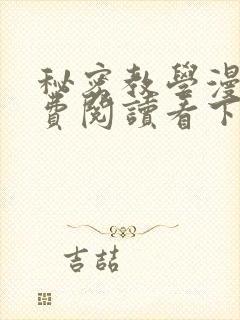 秘密教學漫
費閱讀看下
吉喆